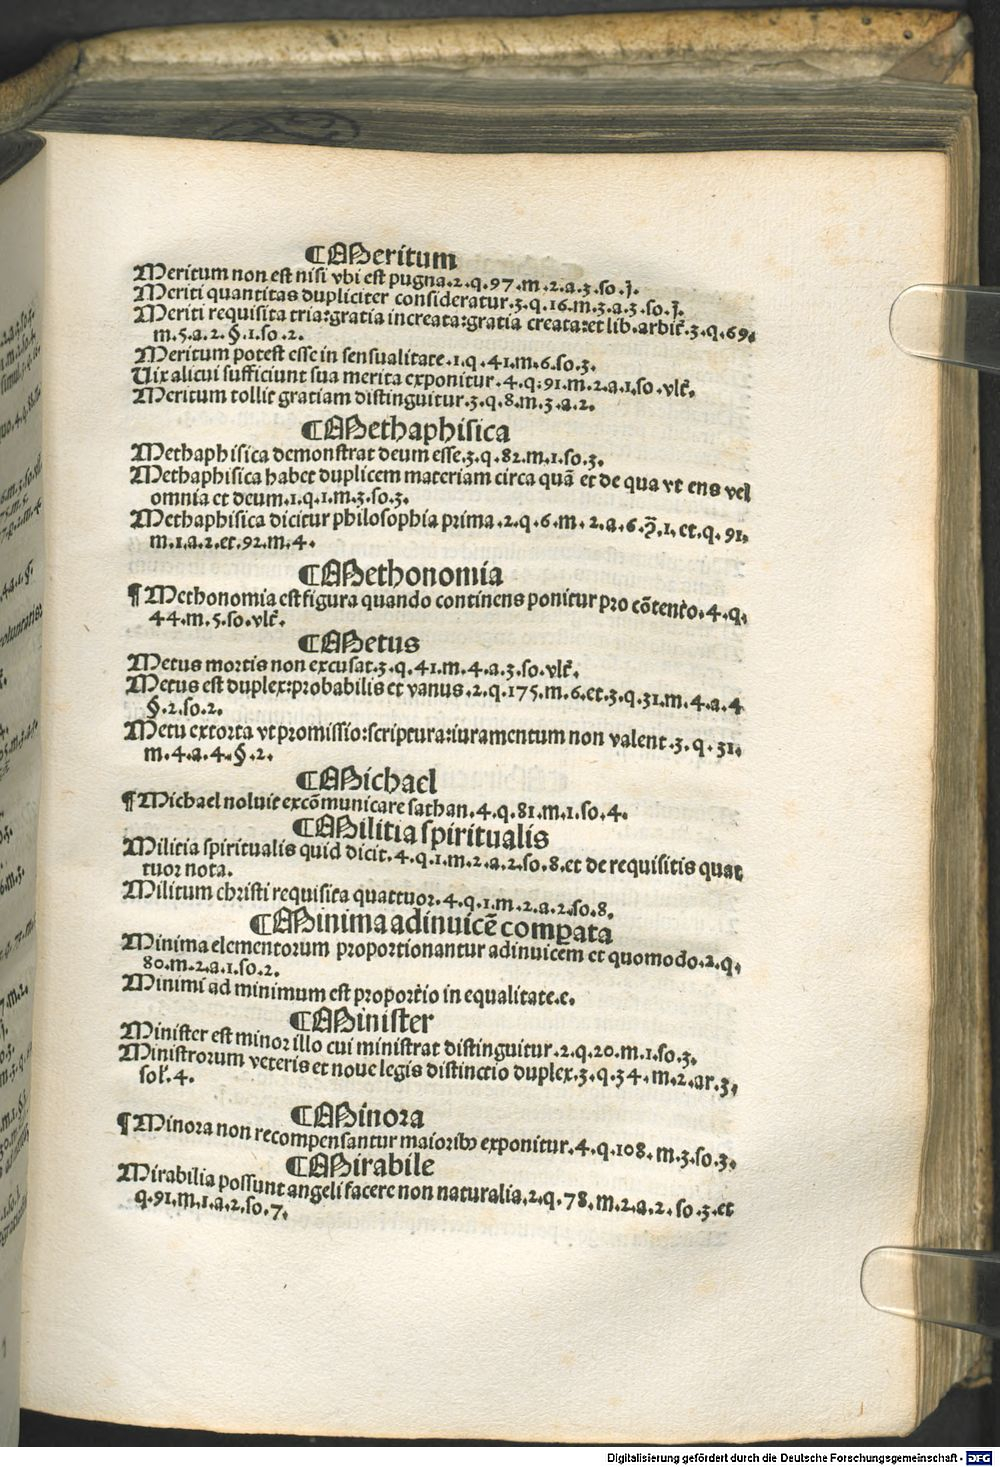 ¶Meritum
Meritum non est nisi vbi est pugna.2.q.97.m.2.a.3.so.j.
Meriti quantitas dupliciter consideratur.3.q.16.m.3.a.3.so.j.
Meriti requisita tria:gratia increata:gratia creata:et lib.arbit̃.3.q.69.
m.5.a.2.§.1.so.2.
Meritum potest esse in sensualitate.1.q.41.m.6.so.3.
Uix alicui sufficiunt sua merita exponitur.4.q.91.m.2.a.1.so.vlt̃.
Meritum tollit gratiam distinguitur.3.q.8.m.3.a.2.
¶Methaphisica
Methaphisica demonstrat deum esse.3.q.82.m.1.so.3.
Methaphisica habet duplicem materiam circa quã et de qua vt ens vel
omnia et deum.1.q.1.m.3.so.3.
Methaphisica dicitur philosophia prima.2.q.6.m.2.a.6.q̃.1.et.q.91.
m.1.a.2.et.92.m.4.
¶Methonomia
¶Methonomia est figura quando continens ponitur pro cõtent̃o.4.q.
44.m.5.so.vlt̃.
¶Metus
Metus mortis non excusat.3.q.41.m.4.a.3.so.vlt̃.
Metus est duplex:probabilis et vanus.2.q.175.m.6.et.3.q.31.m.4.a.4
§.2.so.2.
Metu extorta vt promissio:scriptura:iuramentum non valent.3.q.31.
m.4.a.4.§.2.
¶Michael
¶Michael noluit excõmunicare sathan.4.q.81.m.1.so.4.
¶Militia spiritualis
Militia spiritualis quid dicit.4.q.1.m.2.a.2.so.8.et de requisitis quat
tuor nota.
Militum christi requisita quattuor.4.q.1.m.2.a.2.so.8.
¶Minima adinuicẽ comꝑata
Minima elementorum proportionantur adinuicem et quomodo.2.q.
80.m.2.a.1.so.2.
Minimi ad minimum est proport̃io in equalitate.e.
¶Minister
Minister est minor illo cui ministrat distinguitur.2.q.20.m.1.so.3.
Ministrorum veteris et noue legis distinctio duplex.3.q.34.m.2.ar.3.
sol̃.4.
¶Minora
¶Minora non recompensantur maioribꝰ exponitur.4.q.108.m.3.so.3.
¶Mirabile
Mirabilia possunt angeli facere non naturalia.2.q.78.m.2.a.2.so.3.et
q.91.m.1.a.2.so.7.
Digitalisierung gefördert durch die Deutsche Forschungsgemeinschaft - DFG